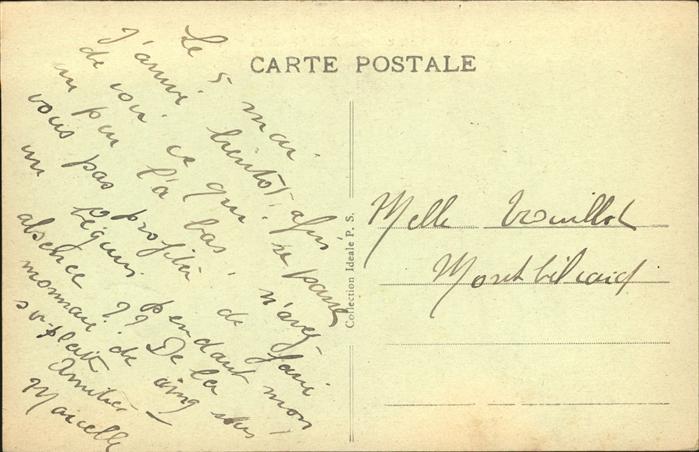 CARTE POSTALE
Le 5 mai
J'arrive bientôt, afin
de voir ce qui se passe
un peu là bas, n'avez
vous pas profité de faire
un béguin pendant mon
absence ?? De la
monnaie de cinq sous
s.v.plait
Amitiés —
Marcelle
Collection Ideale P. S.
Melle Trouillot
Montbéliard